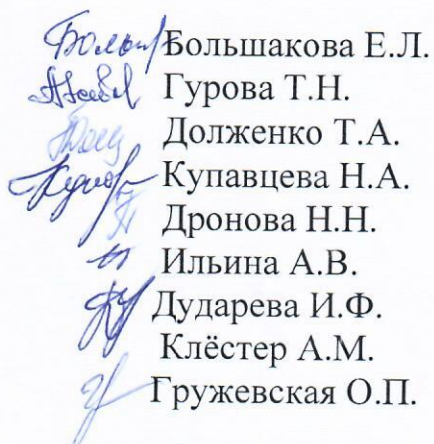 Большакова Е.Л.
Гурова Т.Н.
Долженко Т.А.
Купавцева Н.А.
Дронова Н.Н.
Ильина А.В.
Дударева И.Ф.
Клёстер А.М.
Гружевская О.П.